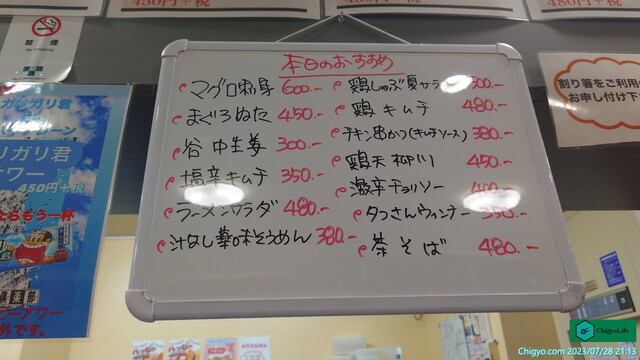 450円+税
480円+税
禁煙
本日のおすすめ
マグロ刺身 600.-
まぐろぬた 450.-
谷中生姜 300.-
塩辛キムチ 350.-
ラーメンサラダ 480.-
汁なし薬味そうめん 380.-
鶏しゃぶ夏サラ
鶏キムチ 480.-
チキン串かつ(キムチソース) 380.-
鶏天柳川 450.-
激辛チョリソー 400.-
タコさんウィンナー 350.-
茶そば 480.-
ガリガリ君
リガリ君
ワー
450円+税
たらもう一杯
倶楽部
ビーアワー
外です。
割り箸をご利用
お申し付け下
ChigyoLife
Chigyo.com 2023/07/28 21:13